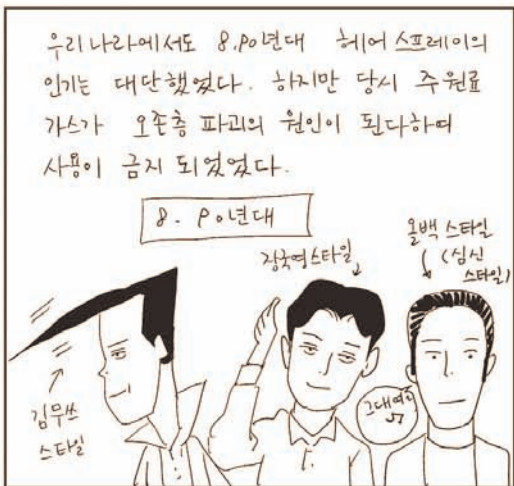 우리나라에서도 8.90년대 헤어 스프레이의
인기는 대단했었다. 하지만 당시 주원료
가스가 오존층 파괴의 원인이 된다하여
사용이 금지 되었었다.
8. 90년대
장국영스타일
올백 스타일
(심신
스타일)
김무쓰
스타일
그대여